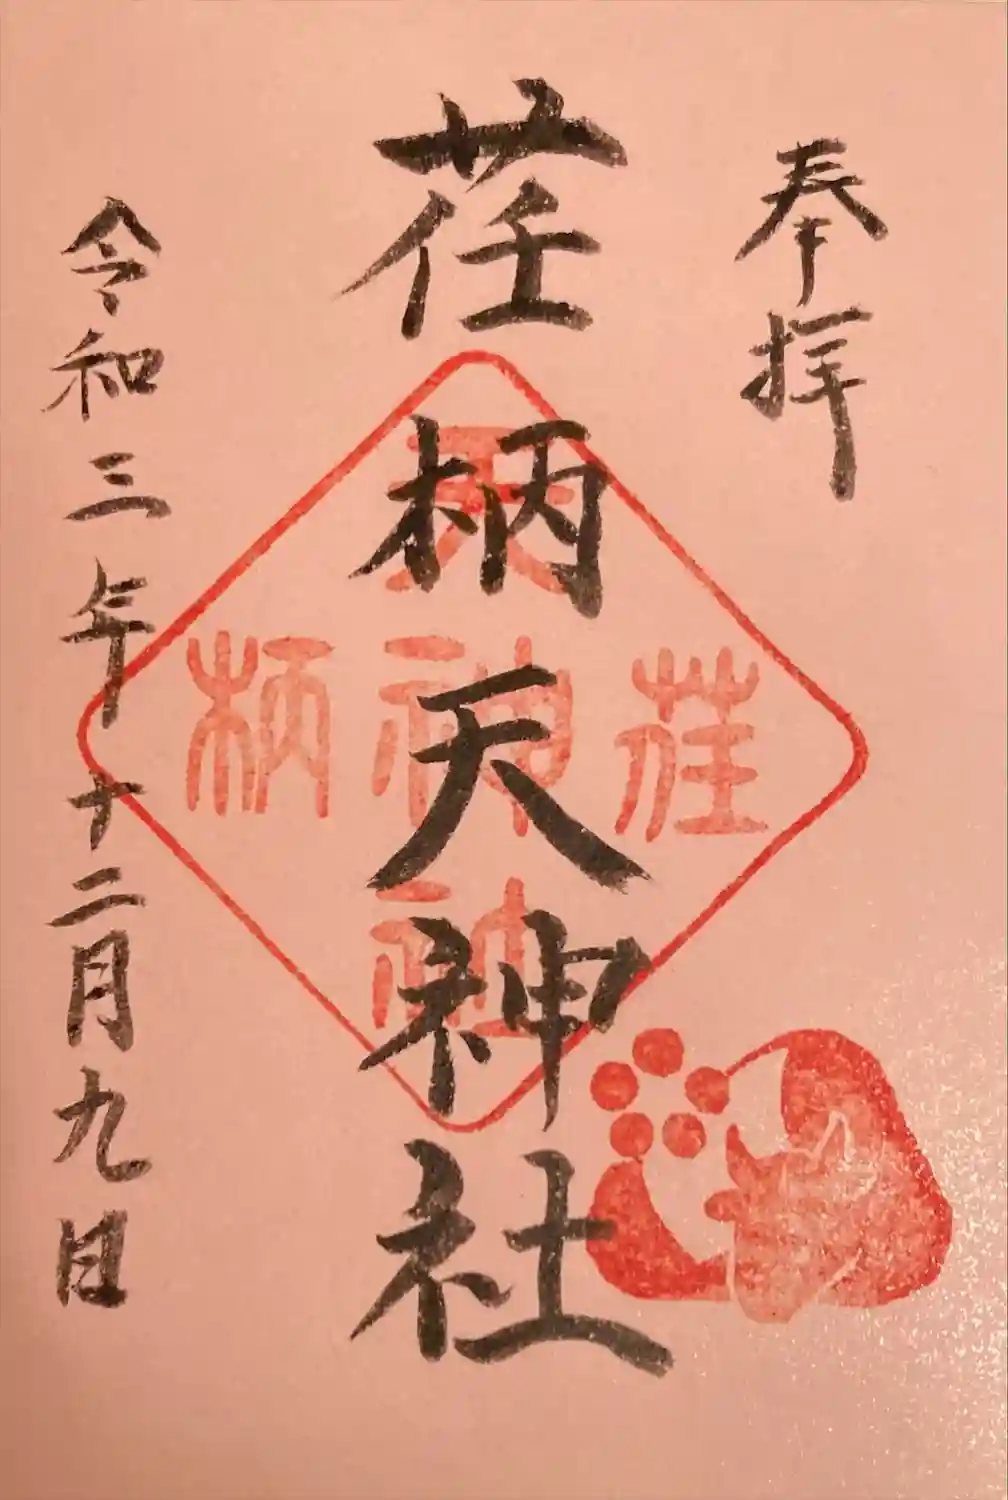 奉拝
荏柄天神社
天
荏神柄
社
令和三年十二月九日